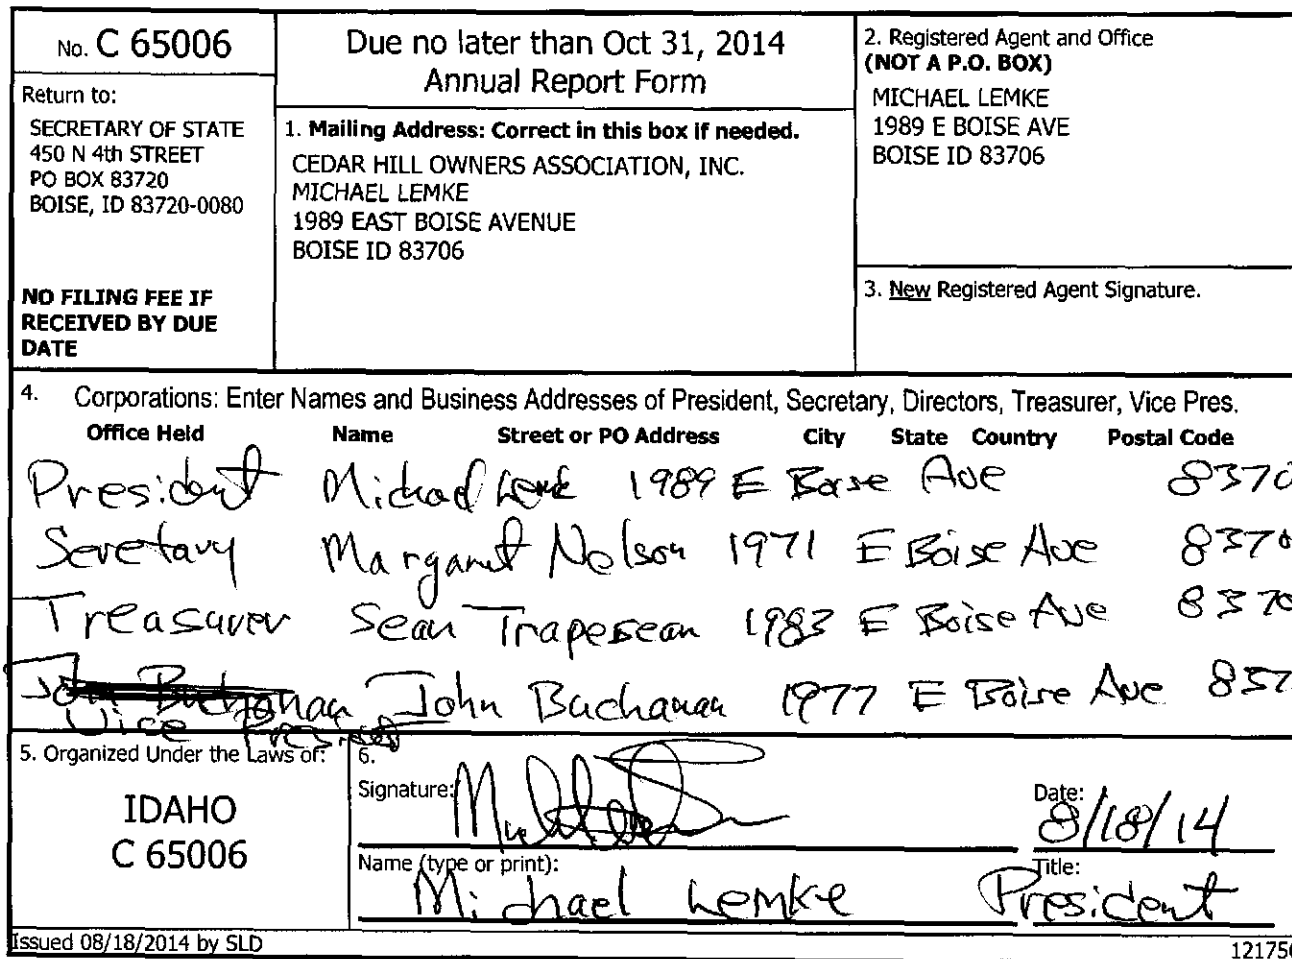 No. C 65006
Return to:
SECRETARY OF STATE
450 N 4th STREET
PO BOX 83720
BOISE, ID 83720-0080
NO FILING FEE IF
RECEIVED BY DUE
DATE
Due no later than Oct 31, 2014
Annual Report Form
1. Mailing Address: Correct in this box if needed.
CEDAR HILL OWNERS ASSOCIATION, INC.
MICHAEL LEMKE
1989 EAST BOISE AVENUE
BOISE ID 83706
2. Registered Agent and Office
(NOT A P.O. BOX)
MICHAEL LEMKE
1989 E BOISE AVE
BOISE ID 83706
3. New Registered Agent Signature.
4. Corporations: Enter Names and Business Addresses of President, Secretary, Directors, Treasurer, Vice Pres.
Office Held Name Street or PO Address City State Country Postal Code
President Michael Lemke 1989 E Boise Ave 8370
Secretary Margaret Nelson 1971 E Boise Ave 8370
Treasurer Sean 1983 E Boise Ave 8370
John Buchanan John Buchanan 1977 E Boise Ave 837
Vice President
5. Organized Under the Laws of:
IDAHO
C 65006
6.
Signature:
Date: 8/18/14
Name (type or print):
Michael Lemke
Title:
President
Issued 08/18/2014 by SLD
121756